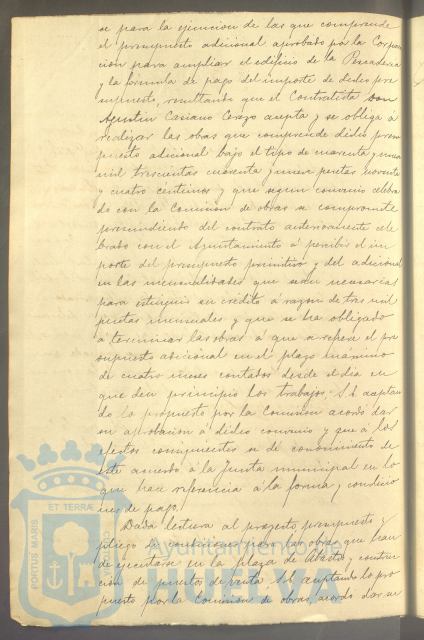 se para la ejecucion de las que comprende
el presupuesto adicional aprobado por la Corpora
cion para ampliar el edificio de la Pescaderia
y la fórmula de pago del importe de dicho pre
supuesto, resultando que el Contratista Don
Agustin Casiano Cerezo acepta y se obliga á
realizar las obras que comprende dicho presu
puesto adicional bajo el tipo de cuarenta y una
mil trescientas cuarenta y nueve pesetas noventa
y cuatro centimos y que segun convenio celebra
do con la Comision de obras se compromete
prescindiendo del contrato anteriormente cele
brado con el Ayuntamiento á percibir el im
porte del presupuesto primitivo y del adicional
en las mensualidades que sean necesarias
para extinguir su crédito á razon de tres mil
pesetas mensuales y que se ha obligado
a terminar las obras á que se refiere el pre
supuesto adicional en el plazo maximo
de cuatro meses contados desde el dia en
que den principio los trabajos. S.E. aceptan
do lo propuesto por la Comision acordo dar
su aprobacion á dicho convenio y que á los
efectos consiguientes se dé conocimiento de
este acuerdo á la Junta municipal en lo
que hace referencia á la forma y condicio
nes de pago.
Dada lectura al proyecto, presupuesto y
pliego de condiciones para las obras que han
de ejecutarse en la plaza de Abastos y construc
cion de puestos de venta S.E. aceptando lo pro
puesto por la Comision de obras, acordo dar su
PORTUS MARIS
ET TERRÆ
Ayuntamiento de
HUELVA